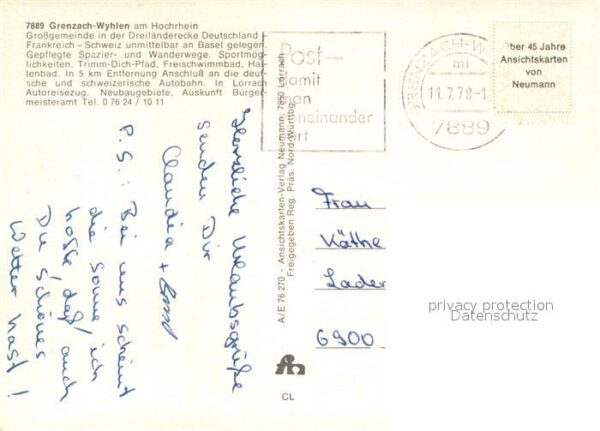 7889 Grenzach-Wyhlen am Hochrhein
Großgemeinde in der Dreiländerecke Deutschland
Frankreich – Schweiz unmittelbar an Basel gelegen.
Gepflegte Spazier- und Wanderwege. Sportmög-
lichkeiten, Trimm-Dich-Pfad, Freischwimmbad, Hal-
lenbad. In 5 km Entfernung Anschluß an die deut-
sche und schweizerische Autobahn. In Lörrach
Autoreisezug. Neubaugebiete, Auskunft Bürger-
meisteramt Tel. 0 76 24 / 10 11
Post–
damit
man
miteinander
GRENZACH-W
ml
11.7.78-1
7889
Über 45 Jahre
Ansichtskarten
von
Neumann
Herzliche Urlaubsgrüße
senden Dir
Claudia +
P.S.: Bei uns scheint
die Sonne, ich
hoffe, daß auch
Du schönes
Wetter hast!
A/E 76 270 - Ansichtskarten-Verlag Neumann, 7850 Lörrach
Freigegeben Reg. Präs. Nord-Württbg.
CL
Frau
Käthe
Lader
6900
privacy protection
Datenschutz